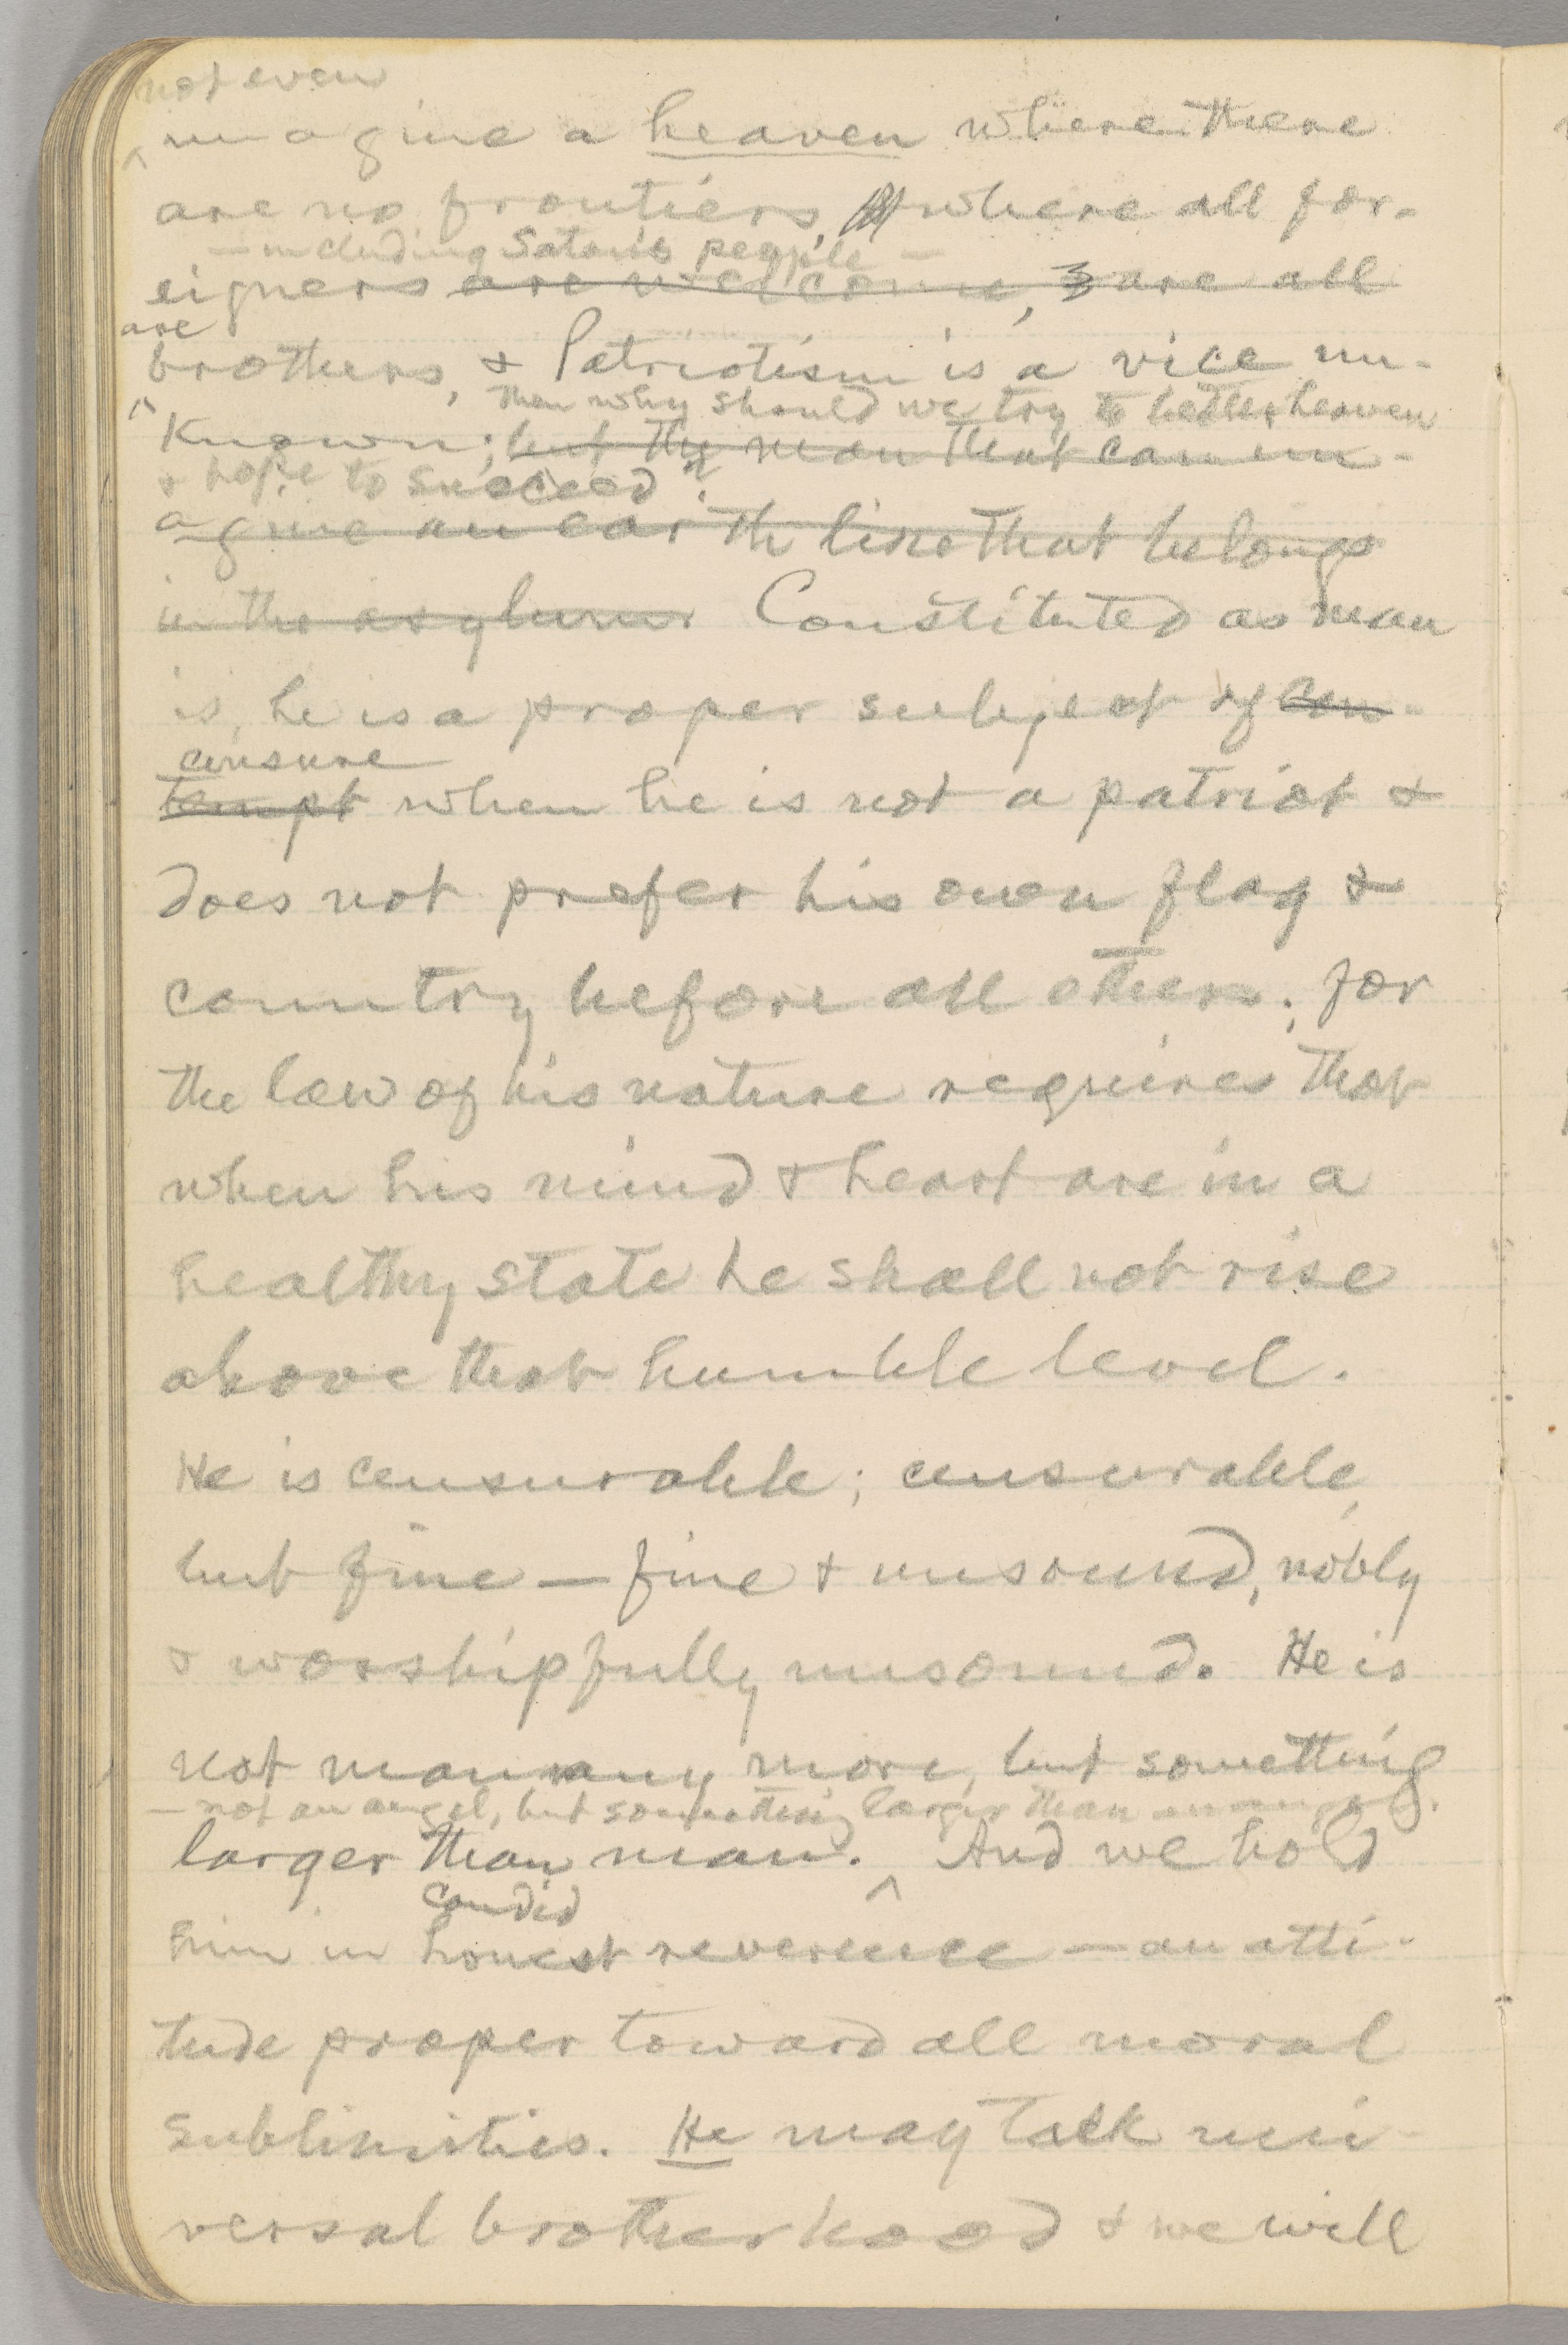 not even
imagine a heaven where there
are no frontiers, where all for-
— including Satan's people —
eigners are welcome, & are all
are
brothers, & Patriotism is a vice un-
then why should we try to better heaven
known; but the man that can im-
& hope to succeed?
agine an earth like that belongs
in the asylum. Constituted as man
is, he is a proper subject of con-
censure
tempt when he is not a patriot &
does not prefer his own flag &
country before all others; for
the law of his nature requires that
when his mind & heart are in a
healthy state he shall not rise
above that humble level.
He is censurable; censurable,
but fine — fine & unsound, nobly
& worshipfully unsound. He is
not man any more, but something
— not an angel, but something larger than
larger than man. And we hold
candid
him in honest reverence — an atti-
tude proper toward all moral
sublimities. He may talk uni-
versal brotherhood & we will